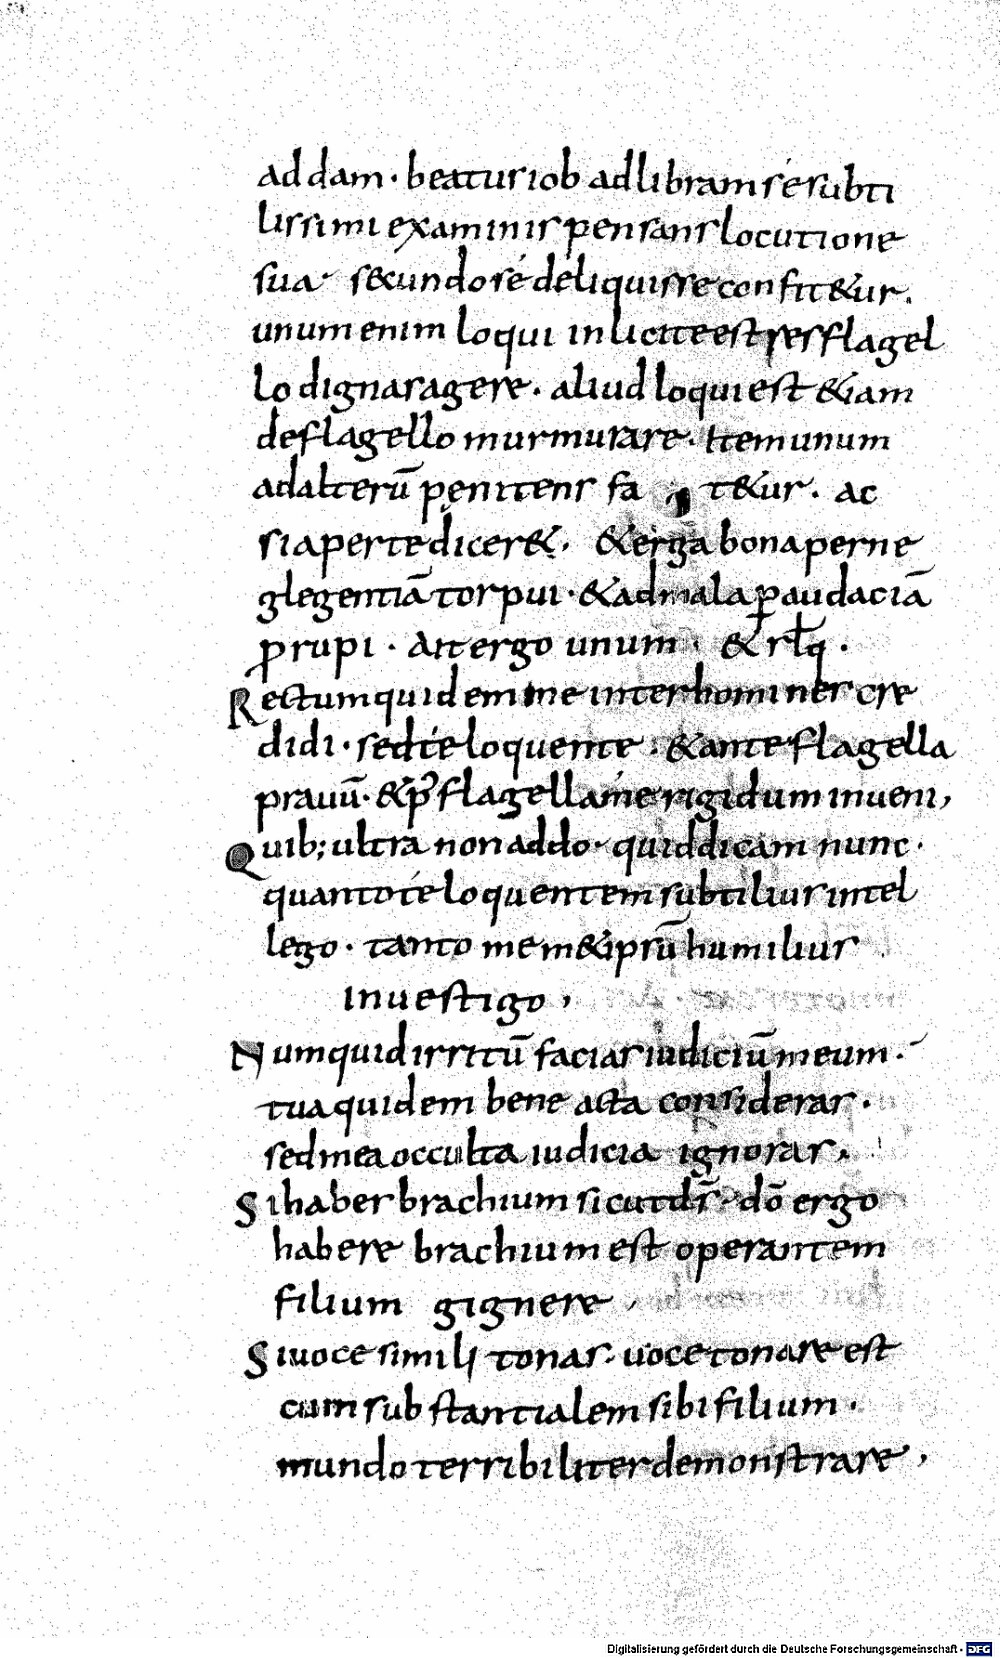 addam · beatus iob adlibram sé subti
lissimi examinis pensans locutione
sua · secundo sé deliquisse confit&ur.
unum enim loqui inlicite est res flagel
lo dignas agere · aliud loqui est &iam
deflagello murmurare · Item unum
adalterū penitens fa t&ur. ac
si aperte dicer& · & ergā bona per ne
glegentiā torpui · & ad mala p audaciā
prupi · Ait ergo unum · & rlq ·
Rectum quidem me inter homines cre
didi · sed té loquente · & ante flagella
prauū · & p flagella mé rigidum inueni,
Quib; ultra non addo · quid dicam nunc ·
quanto té loquentem subtilius intel
lego · tanto mem& ipsū humilius
inuestigo,
Numquid irritū facias iudiciū meum ·
tua quidem bene acta consideras ·
sed mea occulta iudicia ignoras,
Si habes brachium sicut ds̄ · dō ergo
habere brachium est operantem
filium gignere
Si uoce simili tonas · uoce tonare est
cumsubstantialem sibi filium ·
mundo terribiliter demonstrare,
Digitalisierung gefördert durch die Deutsche Forschungsgemeinschaft - DFG